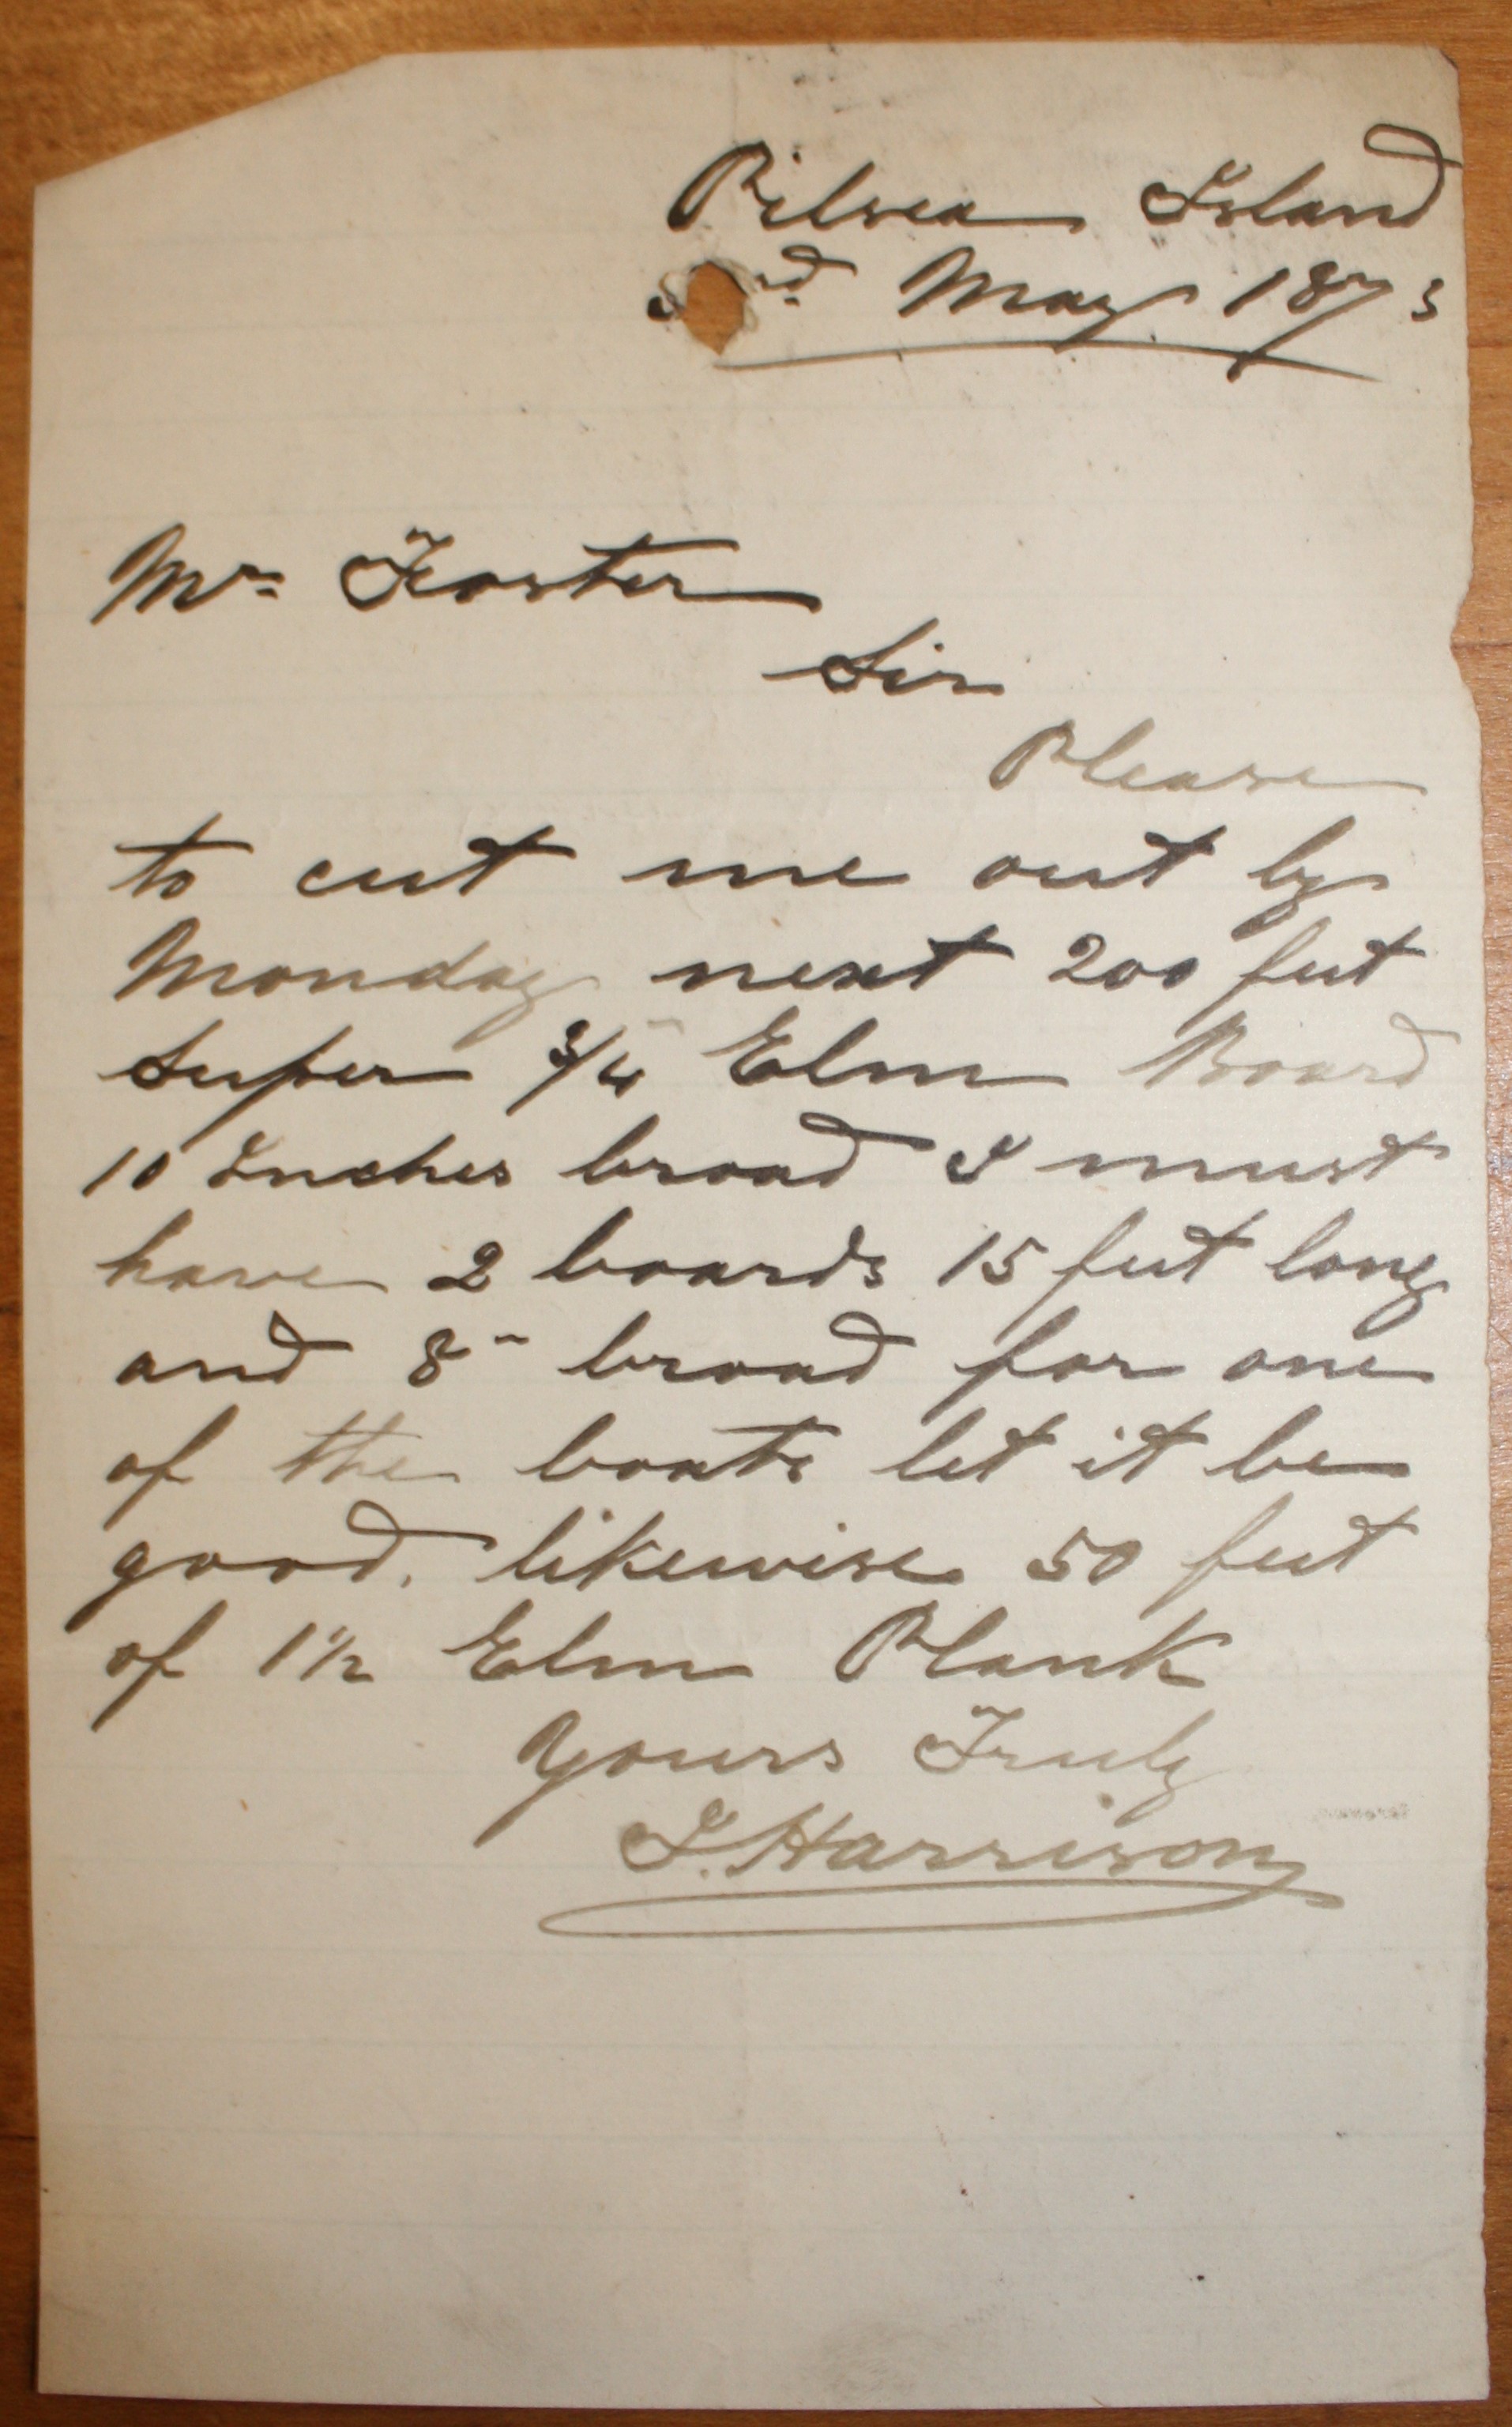 Pilsea Island
3rd May 1873
Mr Foster
Sir
Please
to cut me out by
Monday next 200 feet
Super 3/4" Elm Board
10 Inches broad I must
have 2 boards 15 feet long
and 8" broad for one
of the boats let it be
good. likewise 50 feet
of 1 1/2 Elm Plank
Yours Truly
J. Harrison